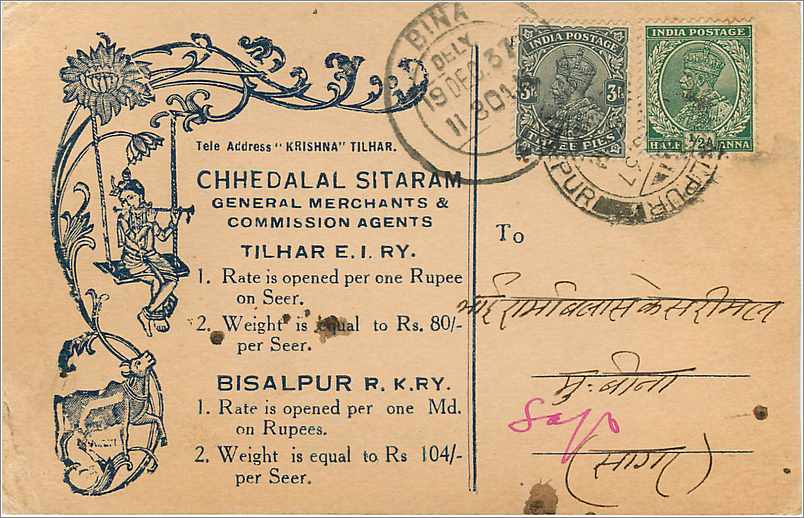 Tele Address "KRISHNA" TILHAR.
CHHEDALAL SITARAM
GENERAL MERCHANTS &
COMMISSION AGENTS
TILHAR E. I. RY.
1. Rate is opened per one Rupee
on Seer.
2. Weight is equal to Rs. 80/-
per Seer.
BISALPUR R. K. RY.
1. Rate is opened per one Md.
on Rupees.
2. Weight is equal to Rs 104/-
per Seer.
BINA
DELY
19 DEC. 37
INDIA POSTAGE
THREE PIES
INDIA POSTAGE
HALF ANNA
To
भाई रामविलास केसरीमल
मु: बीना
(सागर)